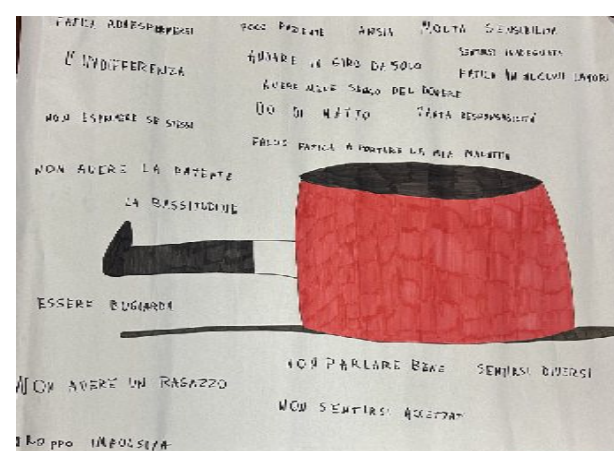 FATICA AD ESPRIMERSI POCO PAZIENTE ANSIA MOLTA SENSIBILITÀ
L'INDIFFERENZA ANDARE IN GIRO DA SOLO SENTIRSI INADEGUATA
FATICA IN ALCUNI LAVORI
AVERE MOLE SENSO DEL DOVERE
NON ESPRIMERE SE STESSI DO DI MATTO TANTA RESPONSABILITÀ
FATICA A PORTARE LA MIA MALATTIA
NON AVERE LA PATENTE
LA BASSITUDINE
ESSERE BUGIARDA
NON PARLARE BENE SENTIRSI DIVERSI
NON AVERE UN RAGAZZO
NON SENTIRSI ACCETTATI
TROPPO IMPULSIVA